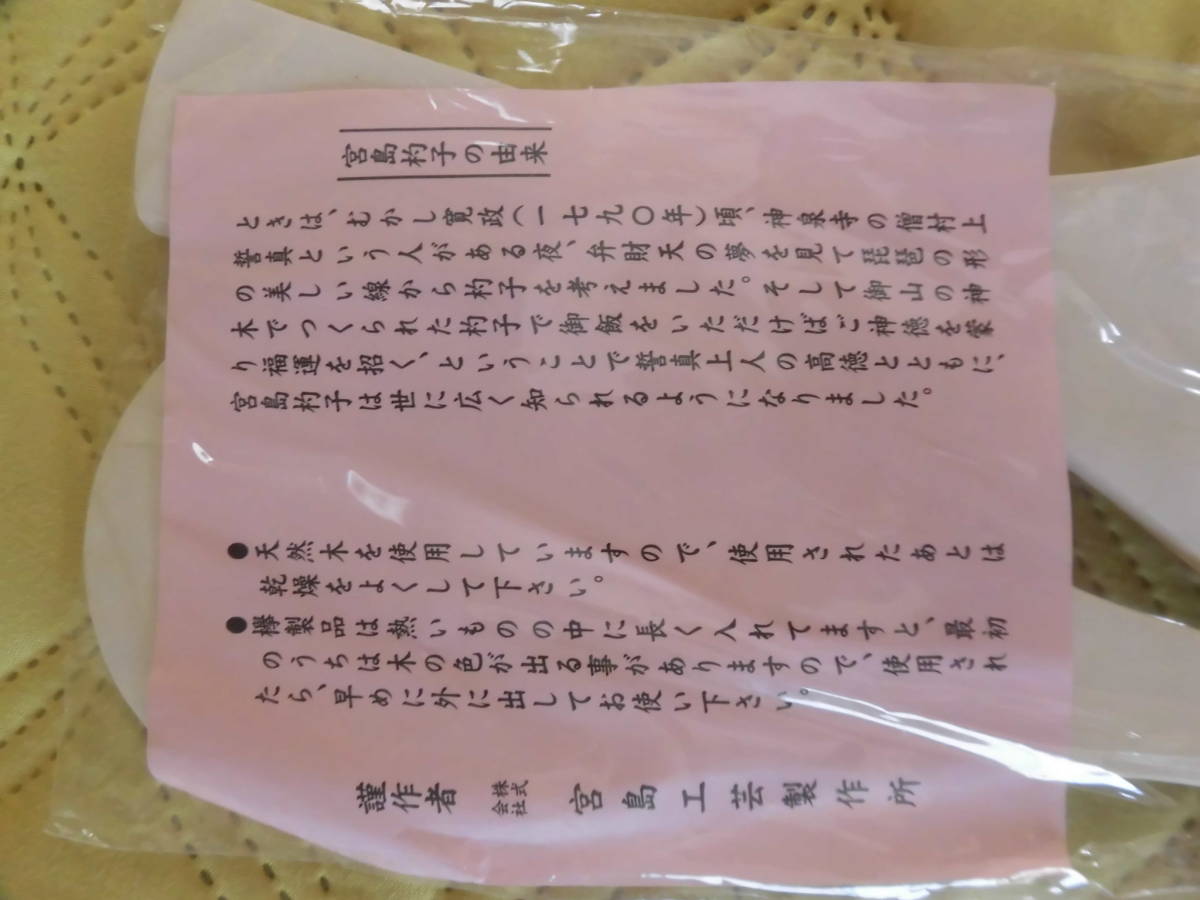 宮島杓子の由来
ときは、むかし寛政(一七九〇年)頃、神泉寺の僧村上
誓真という人がある夜、弁財天の夢を見て琵琶の形
の美しい線から杓子を考えました。そして御山の神
木でつくられた杓子で御飯をいただけばご神徳を蒙
り福運を招く、ということで誓真上人の高徳とともに、
宮島杓子は世に広く知られるようになりました。
●天然木を使用していますので、使用されたあとは
乾燥をよくして下さい。
●欅製品は熱いものの中に長く入れてますと、最初
のうちは木の色が出る事がありますので、使用され
たら、早めに外に出してお使い下さい。
謹作者 株式会社 宮島工芸製作所